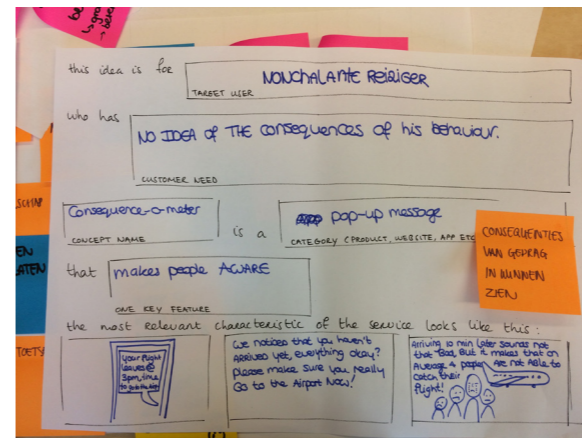 this idea is for
NONCHALANTE REIZIGER
TARGET USER
who has
NO IDEA of THE consequences of his behaviour.
CUSTOMER NEED
Consequence-o-meter
CONCEPT NAME
is a
pop-up message
CATEGORY (PRODUCT, WEBSITE, APP ETC
that
makes people AWARE
ONE KEY FEATURE
CONSEQUENTIES
VAN GEDRAG
IN KUNNEN
ZIEN
the most relevant characteristic of the service looks like this:
Your flight
leaves @
3pm, time
to go to the
We noticed that you haven't
ARRIVED yet, everything okay?
please make sure you really
Go to the Airport Now!
Arriving 10 min later sounds not
that Bad, But it makes that on
Average 4 people are not Able to
catch their
flight!
EN
TOETS